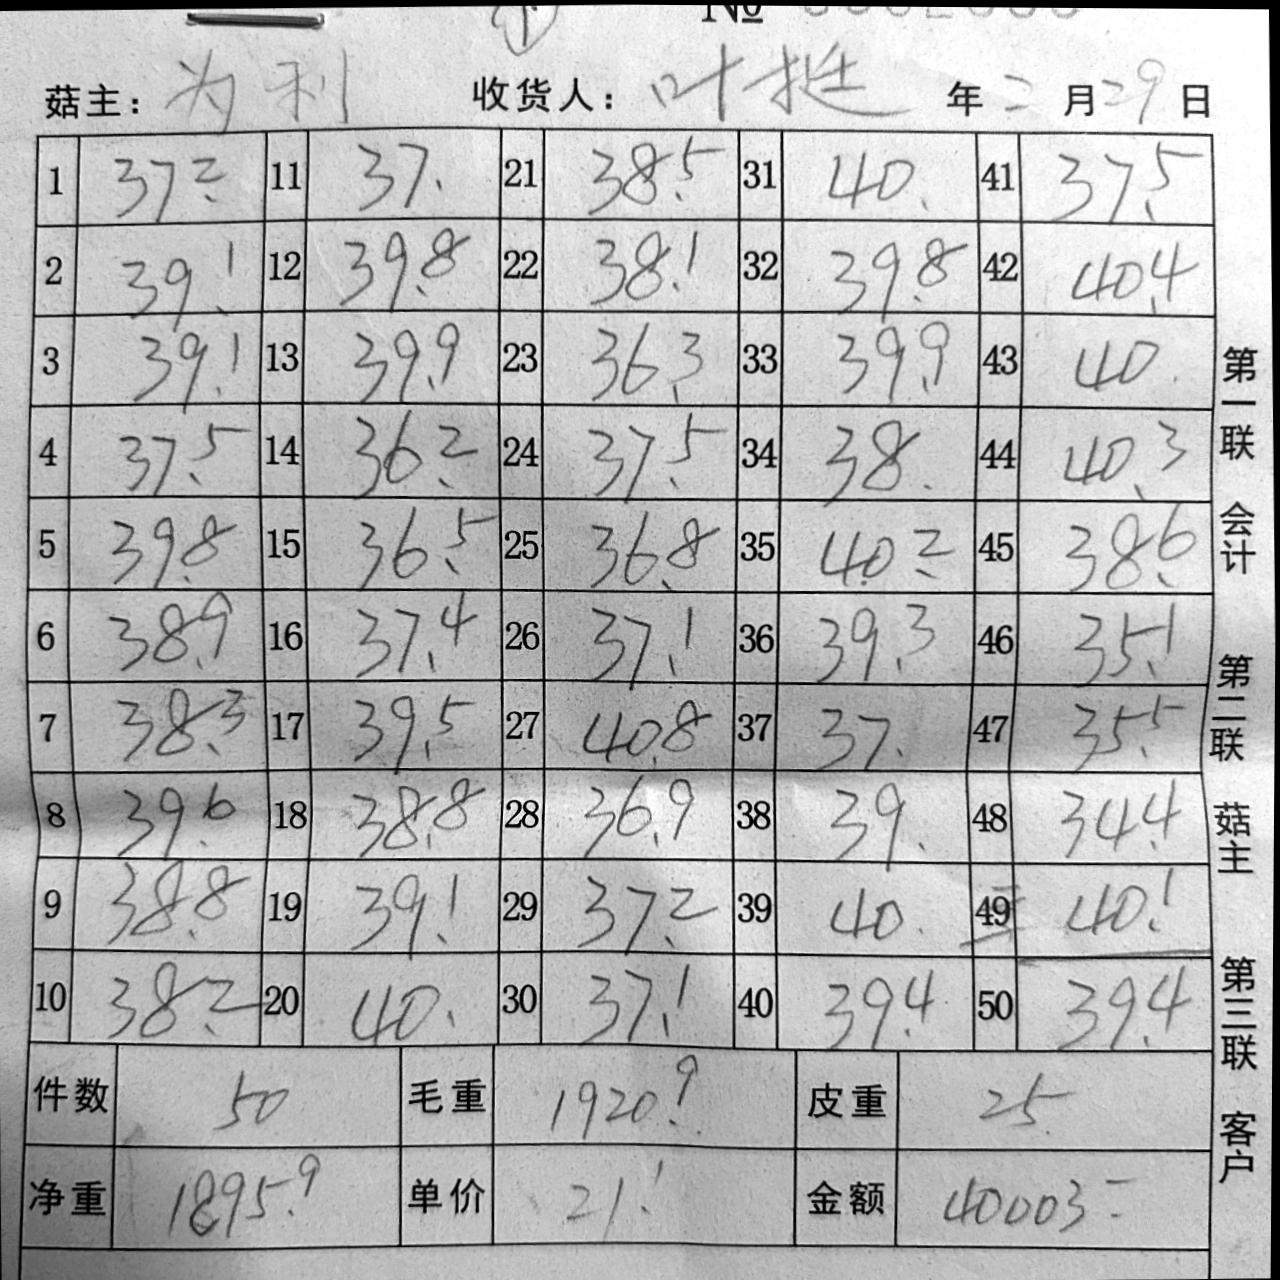 №
菇主：为利 收货人：叶挺 年二月29日
1 37.2 11 37. 21 38.5 31 40. 41 37.5
2 39.1 12 39.8 22 38.1 32 39.8 42 40.4
3 39.1 13 39.9 23 36.3 33 39.9 43 40.
4 37.5 14 36.2 24 37.5 34 38. 44 40.3
5 39.8 15 36.5 25 36.8 35 40.2 45 38.6
6 38.9 16 37.4 26 37.1 36 39.3 46 35.1
7 38.3 17 39.5 27 40.8 37 37. 47 35.5
8 39.6 18 38.8 28 36.9 38 39. 48 34.4
9 38.8 19 39.1 29 37.2 39 40. 49 40.1
10 38.2 20 40. 30 37.1 40 39.4 50 39.4
件数 50 毛重 1920.9 皮重 25
净重 1895.9 单价 21.1 金额 40003.-
第一联 会计 第二联 菇主 第三联 客户